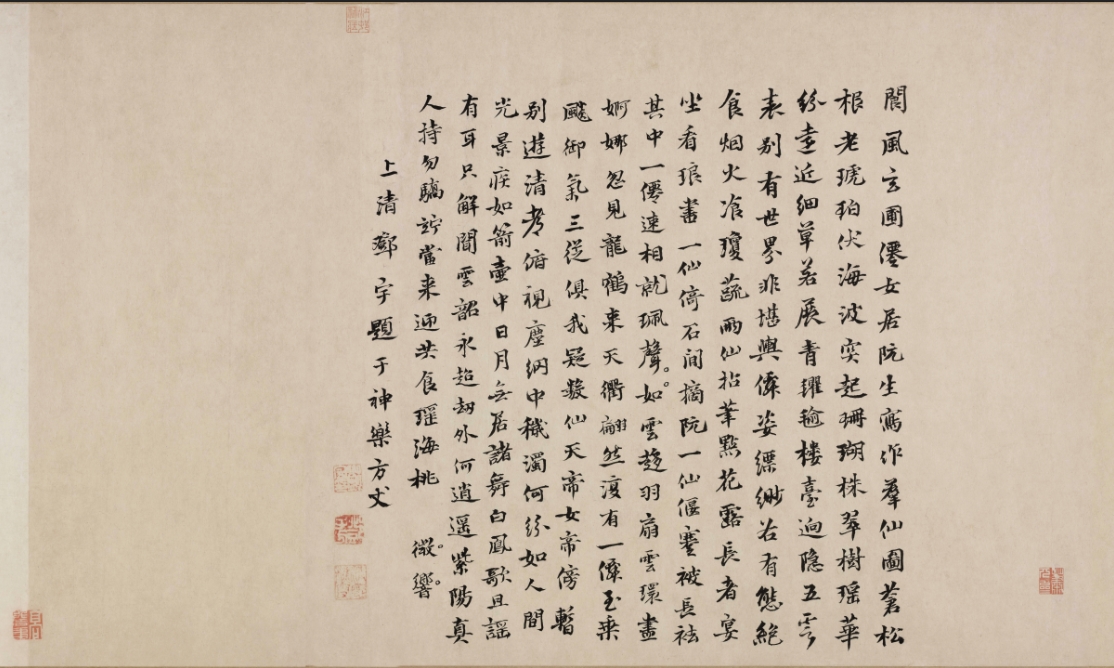 閬風玄圃僊女居阮生寫作羣仙圖蒼松
根老琥珀伏海波突起珊瑚株翠樹瑶華
紛遠近細草若展青𦋺毹楼臺迥隐五雲
表别有世界非堪輿僊姿縹緲各有態絶
食烟火飡瓊蔬两仙拈筆點花露長者宴
坐看琅書一仙倚石间摘阮一仙偃蹇被長袪
其中一僊速相就珮聲如雲趍羽扇雲環盡
婀娜忽見龍鶴来天衢翩然復有一僊至乗
飈御氣三従俱我疑裝仙天帝女帝傍暫
别遊清都俯視塵網中穢濁何紛如人間
光景疾如箭壷中日月無居諸舞白鳳歌且謡
有耳只解聞雲韶永超劫外何逍遥紫陽真
人持勿驕䇓當来迎共食瑶海桃 微響
上清鄧宇題于神樂方丈